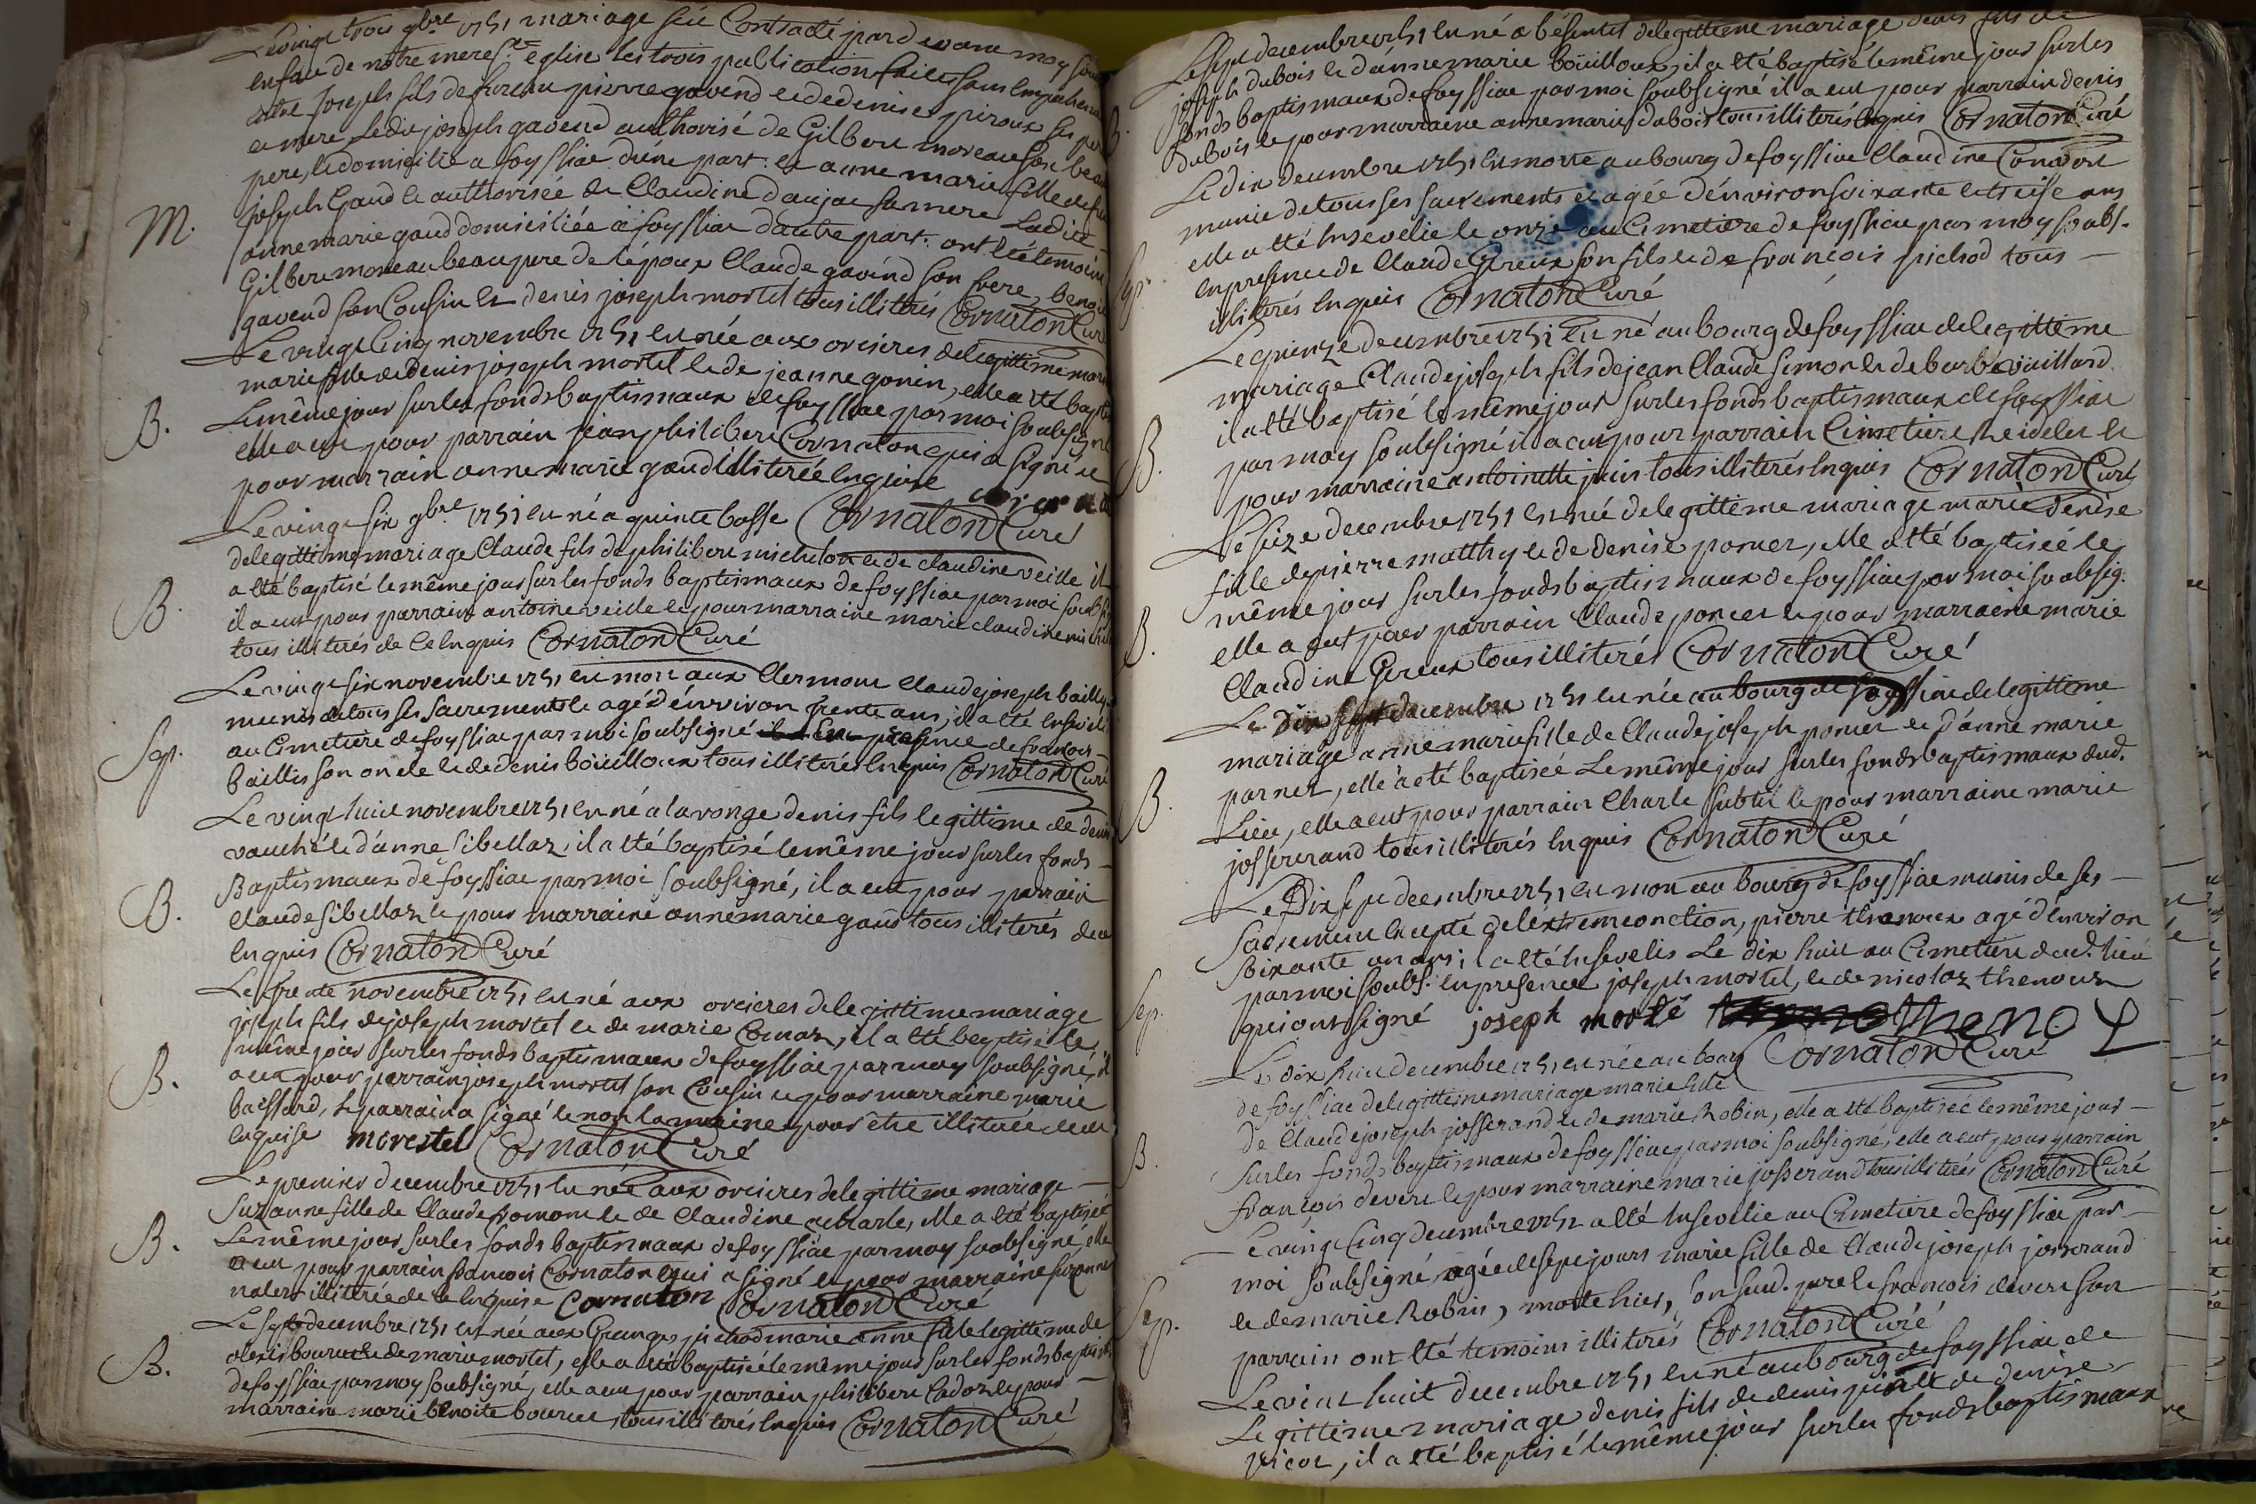 Le vingt trois 9bre 1751 mariage a été Contracté pard evant moy
en face de notre mere ste eglise les trois publication faites sans
entre joseph fils de fut eu pierre gavend et de denise piroux ses
et mere, Ledit joseph gavend authorisé de Gilbert moreau son beau
pere, et domicilié a foyssiac d'une part. et anne marie fille de feu
joseph Gaud et authorisée de Claudine daujat sa mere Ladite
M.
anne marie gaud domiciliée a foyssiac d'autre part. ont été temoins
Gilbert moreau beaupere de l'époux Claude gavend son frere, benoit
gavend son Cousin et denis joseph mortel tous illiterés Cornaton Curé
Le vingt Cinq novembre 1751 est née aux orcieres de legittime
marie fille de denis joseph mortel et de jeanne gonin, elle a été
B.
Le même jour sur les fonds baptismaux de foyssiac par moi soubsigné
elle a eut pour parrain jean philibert Cornaton qui a signé et
pour marrain anne marie gaud illiterée enquise
Le vingt six 9bre 1751 est né a quinte basse Cornaton Curé
de legittime mariage Claude fils de philibert micholon et de claudine veille il
a été baptisé le même jour sur les fonds baptismaux de foyssiac par moi
B.
il a eut pour parrain antoine veille et pour marraine marie claudine
tous illiterés de ce enquis Cornaton Curé
Le vingt six novembre 1751 est mort aux Clermont Claude joseph bailly
munis de tous ses sacrements et agé d'environ trente ans, il a été enseveli
Sep.
au Cimetiere de foyssiac par moi soubsigné en presence de francois
baillis son oncle et de denis boüilloux tous illiterés enquis Cornaton Curé
Le vingt huit novembre 1751 est né a la ronge denis fils legittime de denis
vauché et d'anne sibellaz, il a été baptisé le même jour sur les fonds
Baptismaux de foyssiac par moi soubsigné, il a eut pour parrain
B.
Claude sibellaz et pour marraine anne marie gaud tous illiterés de ce
enquis Cornaton Curé
Le trente novembre 1751 est né aux orcieres de legittime mariage
joseph fils de joseph mortel et de marie Comaz, il a été baptisé le
même jour sur les fonds baptismaux de foyssiac par moy soubsigné, il
B.
a eut pour parrain joseph mortel son Cousin et pour marraine marie
baissard, le parrain a signé et non la marraine pour être illiterée de ce
enquise morestel Cornaton Curé
Le premier decembre 1751 est née aux orcieres de legittime mariage
Suzanne fille de Claude fromont et de Claudine, elle a été baptisée
B.
Le même jour sur les fonds baptismaux de foyssiac par moy soubsigné, elle
a eut pour parrain francois Cornaton qui a signé et pour marraine suzanne
illiterée de ce enquise Cornaton Cornaton Curé
Le sept decembre 1751 est née aux Granges pichod marie anne fille legittime de
alexis bourcet et de marie mortel, elle a été baptisée le même jour sur les fonds
B.
de foyssiac par moy soubsigné, elle a eut pour parrain philibert Cadoz et pour
marraine marie benoite bourcet, tous illiterés enquis Cornaton Curé
Le sept decembre 1751 est né a bésentet de legittime mariage denis fils de
joseph dubois et d'anne marie boüilloux, il a été baptisé le même jour sur les
B.
fonds baptismaux de foyssiac par moi soubsigné il a eut pour parrain denis
dubois et pour marraine anne marie dubois tous illiterés enquis Cornaton Curé
Le dix decembre 1751 est morte au bourg de foyssiac Claudine
munie de tous ses sacrements et agée d'environ soixante et treize ans
elle a été Ensevelie le onze au Cimetiere de foyssiac par moy soubs.
Sep.
en presence de Claude Gereux son fils et de francois pichod tous
illiterés enquis Cornaton Curé
Le quinze decembre 1751 est né au bourg de foyssiac de legittime
mariage Claude joseph fils de jean Claude simon et de barbe vüillard
il a été baptisé le même jour sur les fonds baptismaux de foyssiac
B.
par moy soubsigné il a eut pour parrain Cimetiere et
pour marraine antoinette tous illiterés enquis Cornaton Curé
Le seize decembre 1751 est née de legittime mariage marie denise
fille de pierre matthy et de denise poncet, elle a été baptisée le
même jour sur les fonds baptismaux de foyssiac par moi soubsig.
B.
elle a eut pour parrain Claude poncet et pour marraine marie
Claudine Gereux tous illiterés Cornaton Curé
Le dix sept decembre 1751 est née au bourg de foyssiac de legittime
mariage anne marie fille de Claude joseph poncet et d'anne marie
B.
parnet, elle a été baptisée Le même jour sur les fonds baptismaux dud.
Lieu, elle a eut pour parrain Charle subtil et pour marraine marie
josserand tous illiterés enquis Cornaton Curé
Le Dix sept decembre 1751 est mort au bourg de foyssiac munis de ses
sacrement Excepté de lextremeonction, pierre thenoux agé d'environ
soixante un ans, il a été Ensevelis Le dix huit au Cimetiere dud. lieu
Sep.
par moi soubs. en presence joseph mortel, et de nicolaz thenoux
qui ont signé joseph morté theno
Le dix huit decembre 1751 est née au bourg Cornaton Curé
de foyssiac de legittime mariage marie fille
de Claude joseph josserand et de marie Robin, elle a été baptisée le même jour
B.
sur les fonds baptismaux de foyssiac par moi soubsigné, elle a eut pour parrain
francois devert et pour marraine marie josserand tous illiterés Cornaton Curé
Le vingt Cinq decembre 1751 a été Ensevelie au Cimetiere de foyssiac par
moi soubsigné, agée de sept jours marie fille de Claude joseph josserand
Sep.
et de marie Robin, morte hier, son sud. pere et francois devert son
parrain ont été temoins illiterés Cornaton Curé
Le vint huit decembre 1751 est né au bourg de foyssiac de
Legittime mariage denis fils de denis et de denise
picot, il a été baptisé le même jour sur les fonds baptismaux